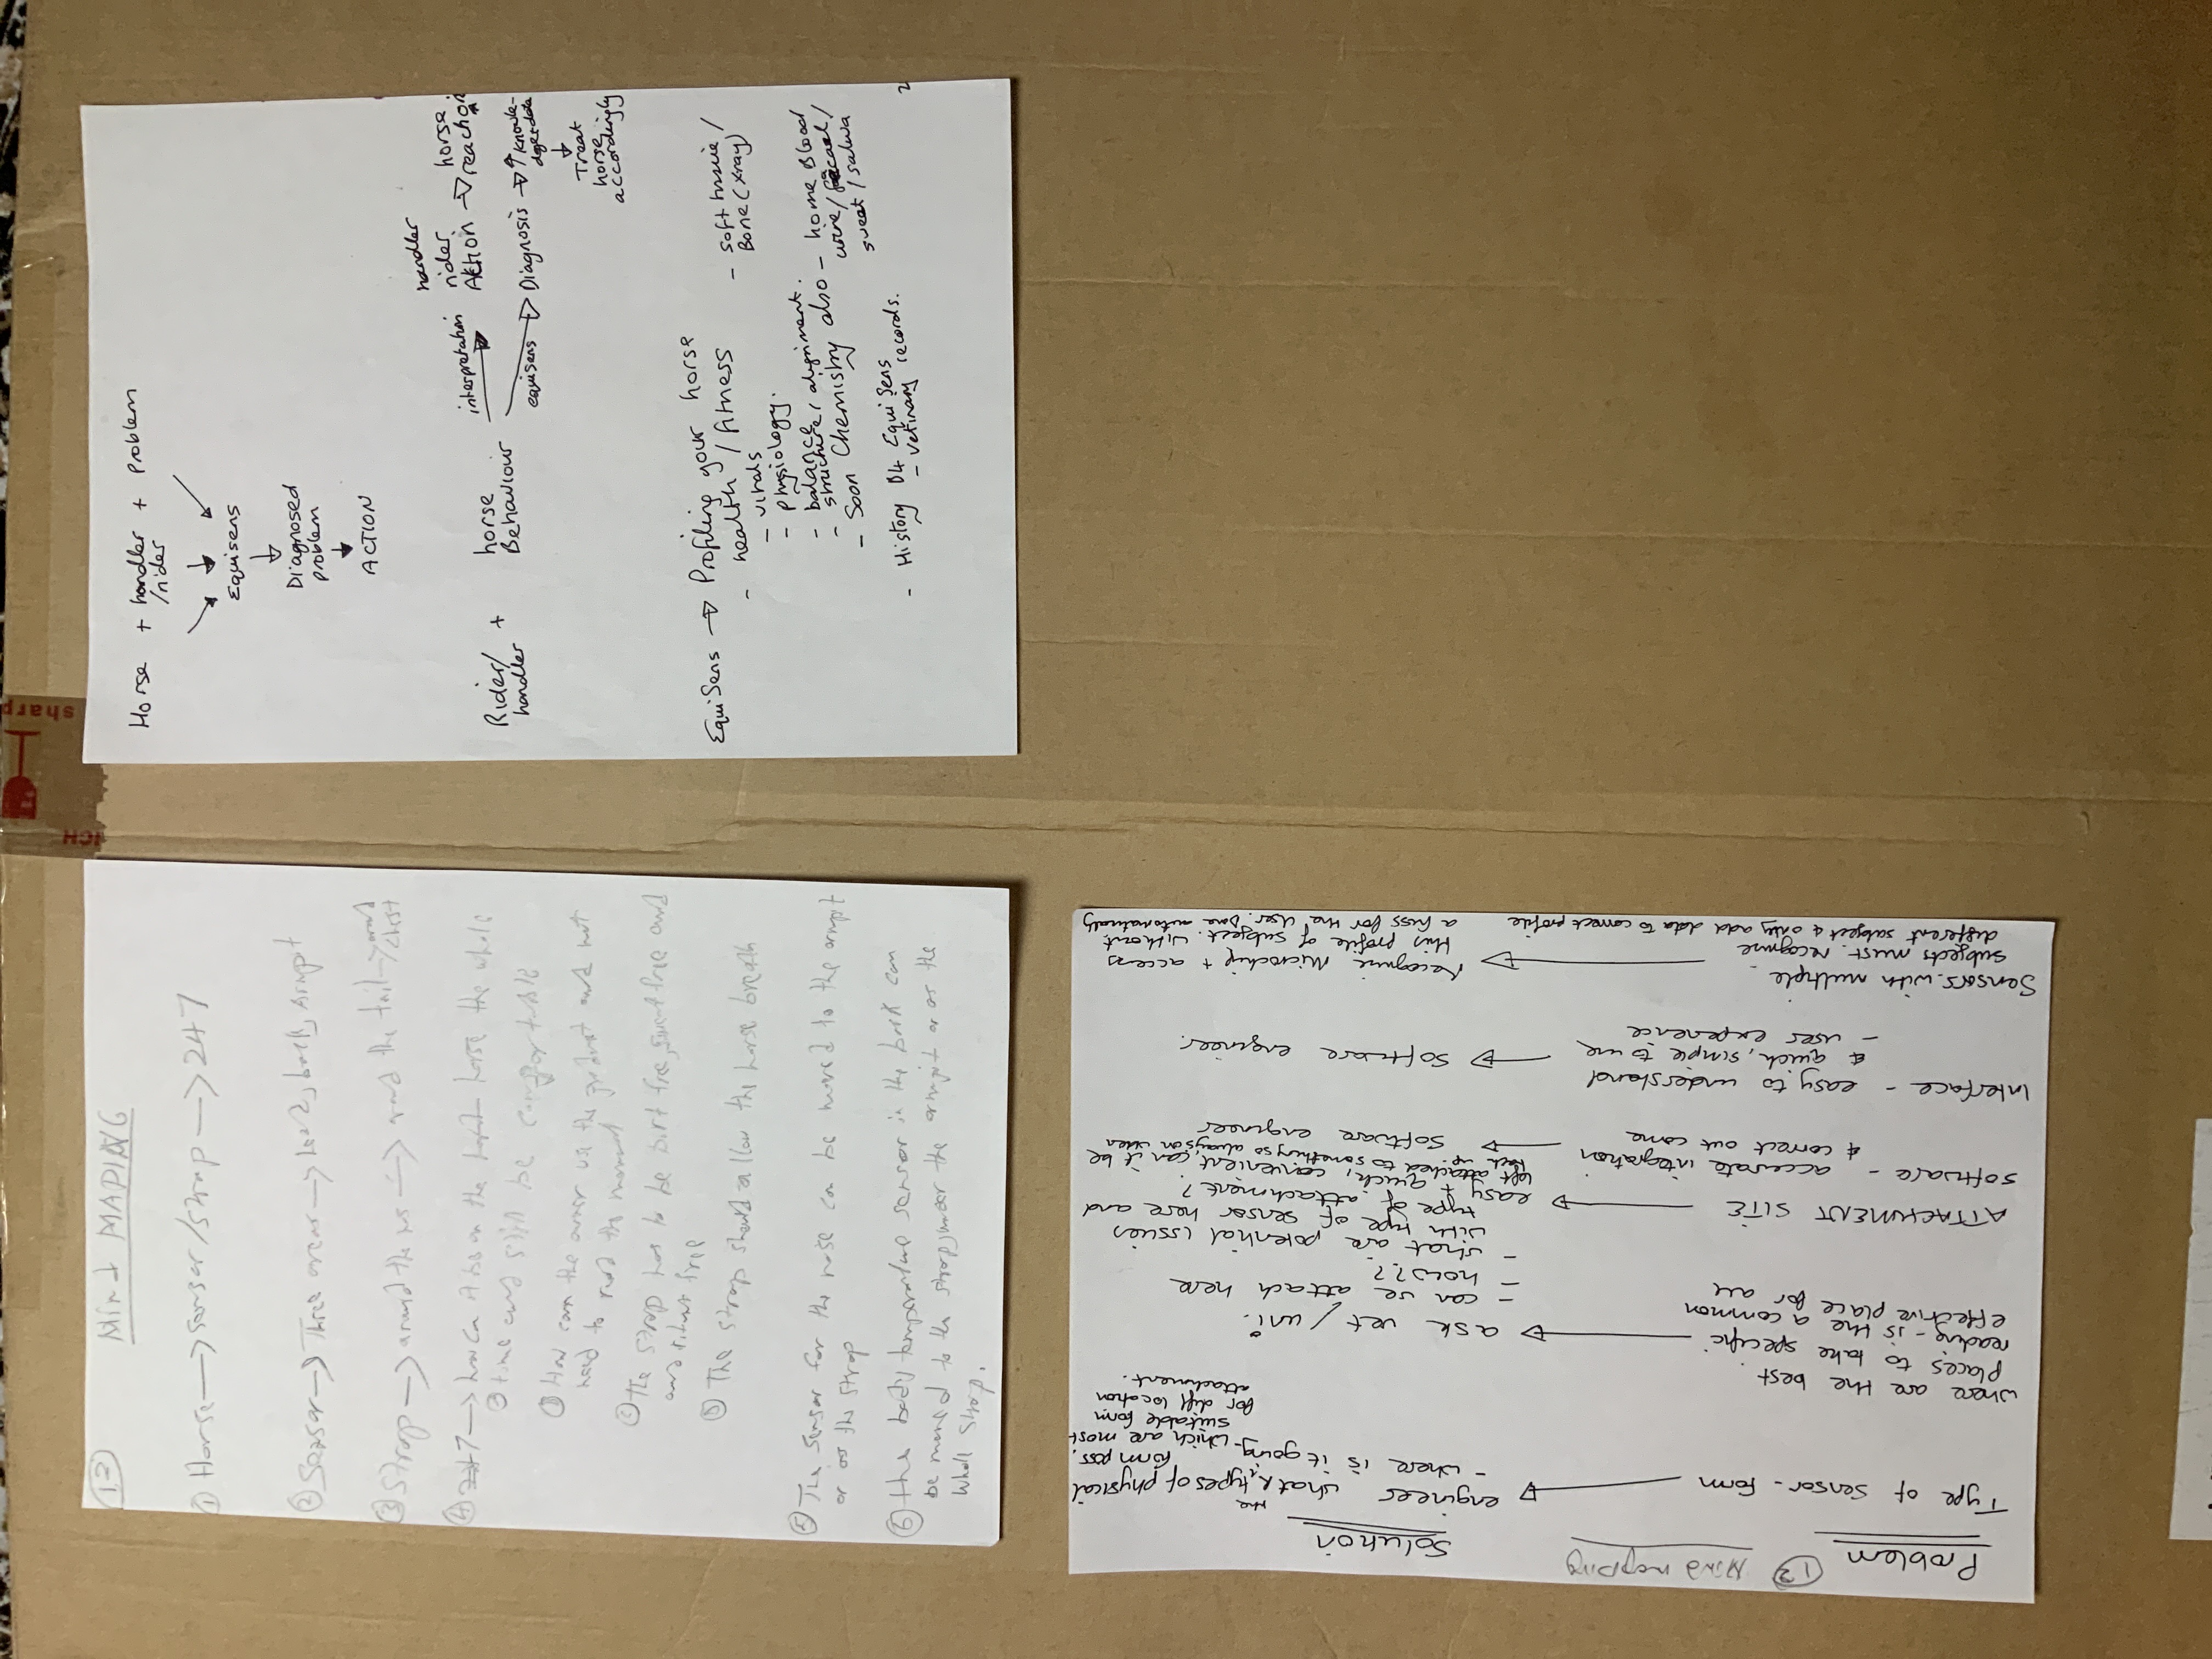 sharp
NCH
13
Mind MAPING
① Horse → sensor/strap → 247
② Sensor → Three areas → head, back, armpit
③ Strap → around the → around the tail → around
chest
④ 247 → how can it be on the horse the whole
time and still be comfortable
① How can the owner use the product and not
need to read the manual
② The strap has to be dirt free, sweat free and
and free
③ The strap should allow the horse breath
⑤ The sensor for the nose can be moved to the armpit
or as the strap
⑥ The body temperature sensor in the back can
be moved to the strap, under the armpit or as the
whole strap.
Horse + handler + problem
/rider
Equisens
Diagnosed
problem
ACTION
Rider/ + horse
handler Behaviour
interpretation
handler
rider
Action → horse
reaction
equisens → Diagnosis → ↑ knowle-
dge+data
Treat
horse
accordingly
EquiSens → Profiling your horse
- health / fitness
- vitals
- physiology.
- balance
- structure / alignment.
- Soon Chemistry also
- soft tissue /
Bone (xray)
- home Blood
urine / faecal /
sweat / saliva
- History B4 EquiSens
- vetinary records.
2
Problem 13 Mind mapping Solution
Type of Sensor. Form → engineer what R the types of physical
form poss.
- where is it going. which are most
suitable form
for diff location
attachment.
where are the best
places to take specific
reading - is the a common
effective place for all
→ ask vet / uni.
- can we attach here
- how??
- what are potential issues
with type of sensor here and
type of attachment?
ATTACHMENT SITE → easy + quick, convenient, can it be
left attached to something so always on when
tack up.
software - accurate integration
& correct out come
→ software engineer
Interface - easy to understand
& quick, simple to use
- user experience
→ software engineer.
Sensors with multiple
subjects must recognise
different subject & only add data to correct profile
→ recognise Microchip + access
this profile of subject without
a fuss for the user. Done automatically